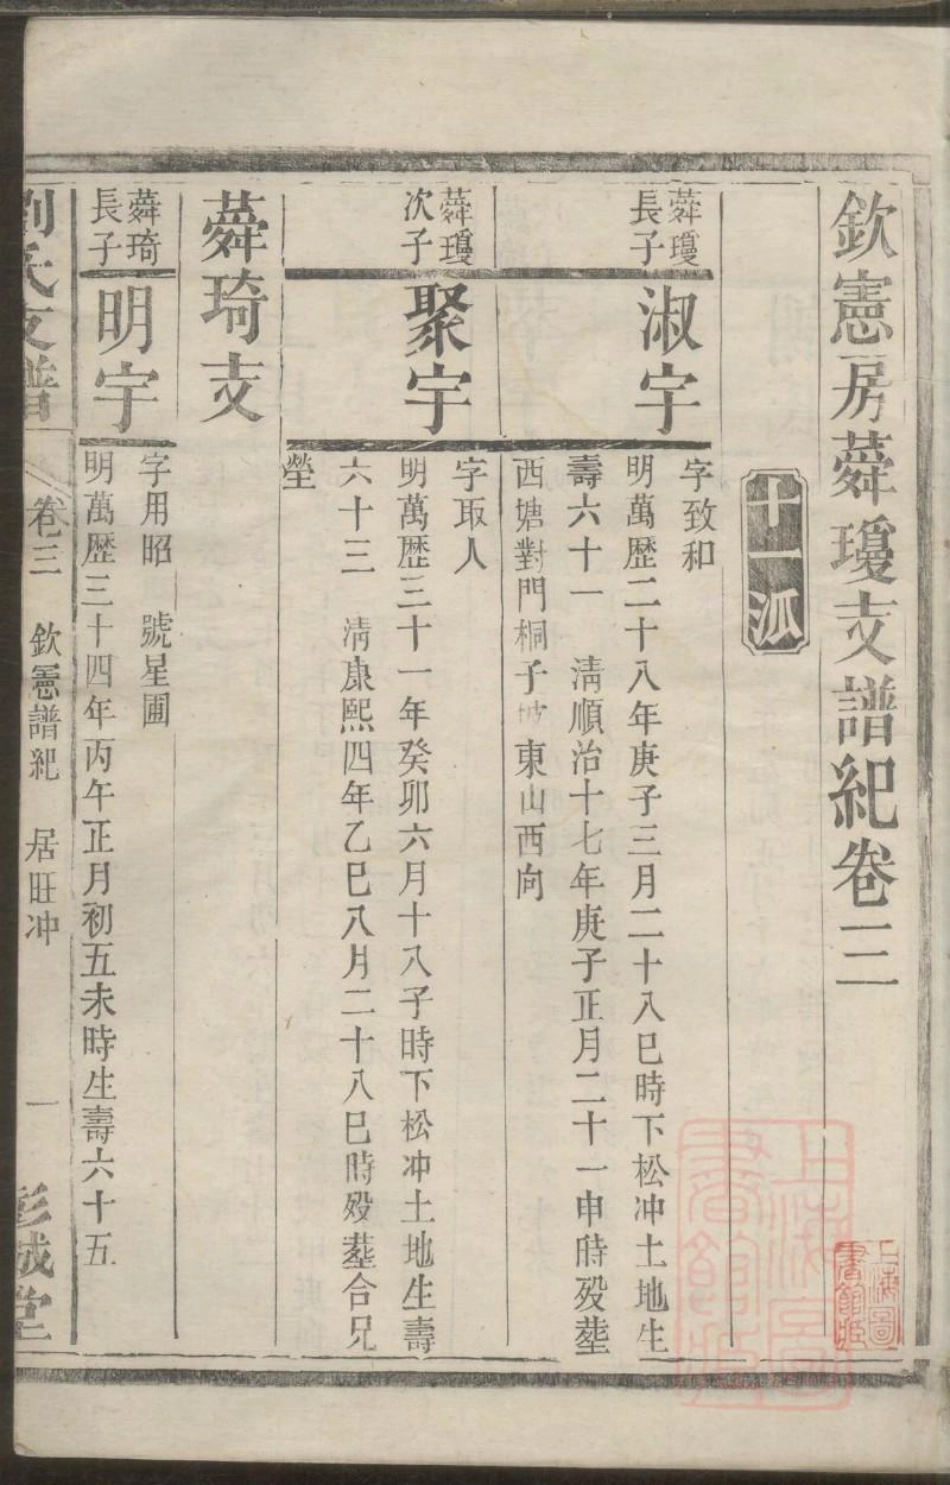 欽憲房蕣瓊支譜紀卷三
十一派
蕣瓊
長子
淑宇
字致和
明萬歷二十八年庚子三月二十八巳時下松冲土地生
壽六十一 淸順治十七年庚子正月二十一申時歿塟
西塘對門桐子坡東山西向
蕣瓊
次子
聚宇
字取人
明萬歷三十一年癸卯六月十八子時下松冲土地生壽
六十三 淸康熙四年乙巳八月二十八巳時歿塟合兄
塋
蕣琦支
蕣琦
長子
明宇
字用昭 號星圃
明萬歷三十四年丙午正月初五未時生壽六十五
劉氏支譜 卷三 欽憲譜紀 居旺冲 一 彭城堂
上海圖書館藏
上海圖書館藏